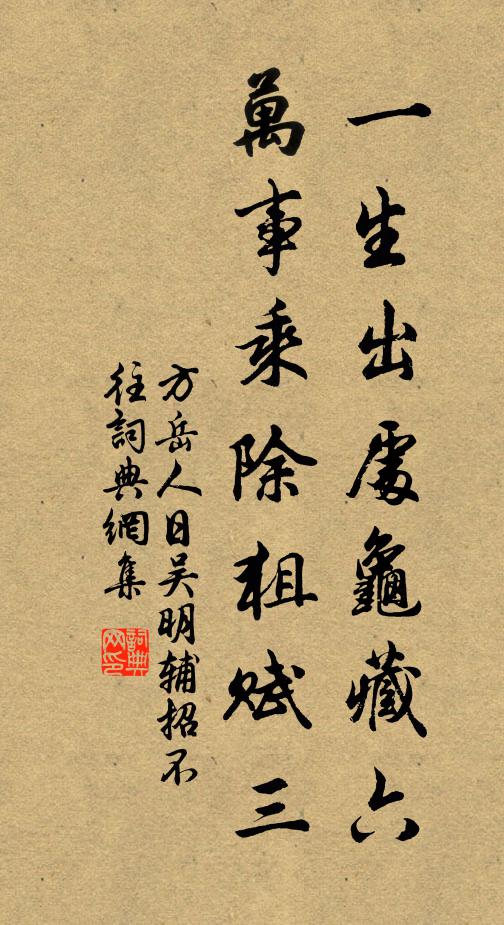 一生出處龜藏六
萬事乘除狙賦三
方岳人日吴明辅招不
往詞典網集
詞典
网印